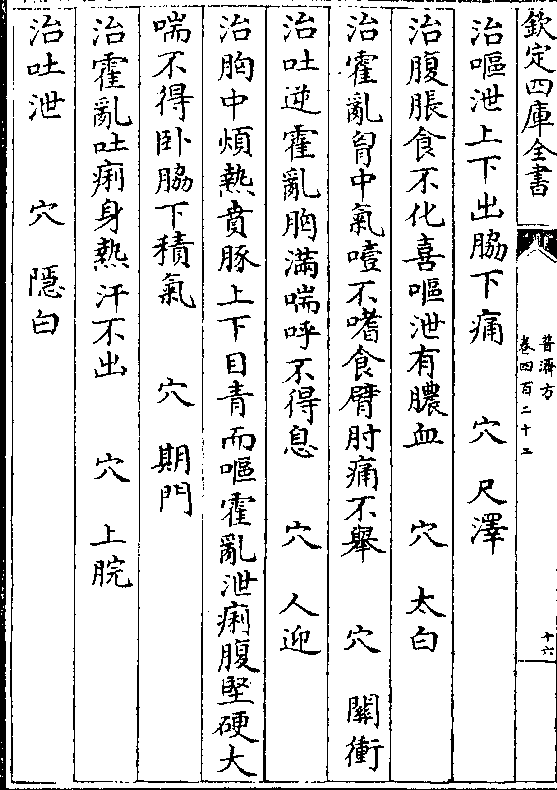 欽定四庫全書
普濟方
卷四百二十二
十六
治嘔泄上下出脇下痛 穴 尺澤
治腹脹食不化喜嘔泄有膿血 穴 太白
治霍亂胷中氣噎不嗜食臂肘痛不舉 穴 關衝
治吐逆霍亂胸滿喘呼不得息 穴 人迎
治胸中煩熱賁豚上下目青而嘔霍亂泄痢腹堅硬大
喘不得卧脇下積氣 穴 期門
治霍亂吐痢身熱汗不出 穴 上脘
治吐泄 穴 隱白